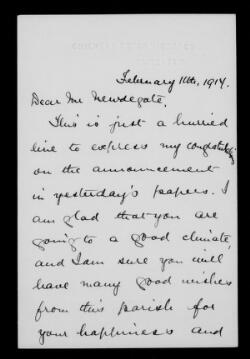 February 11th, 1917.
Dear Mr Newdegate,
This is just a hurried
line to express my
on the announcement
in yesterday's papers. I
am glad that you are
going to a good climate,
and I am sure you will
have many good wishes
from this parish for
your happiness and